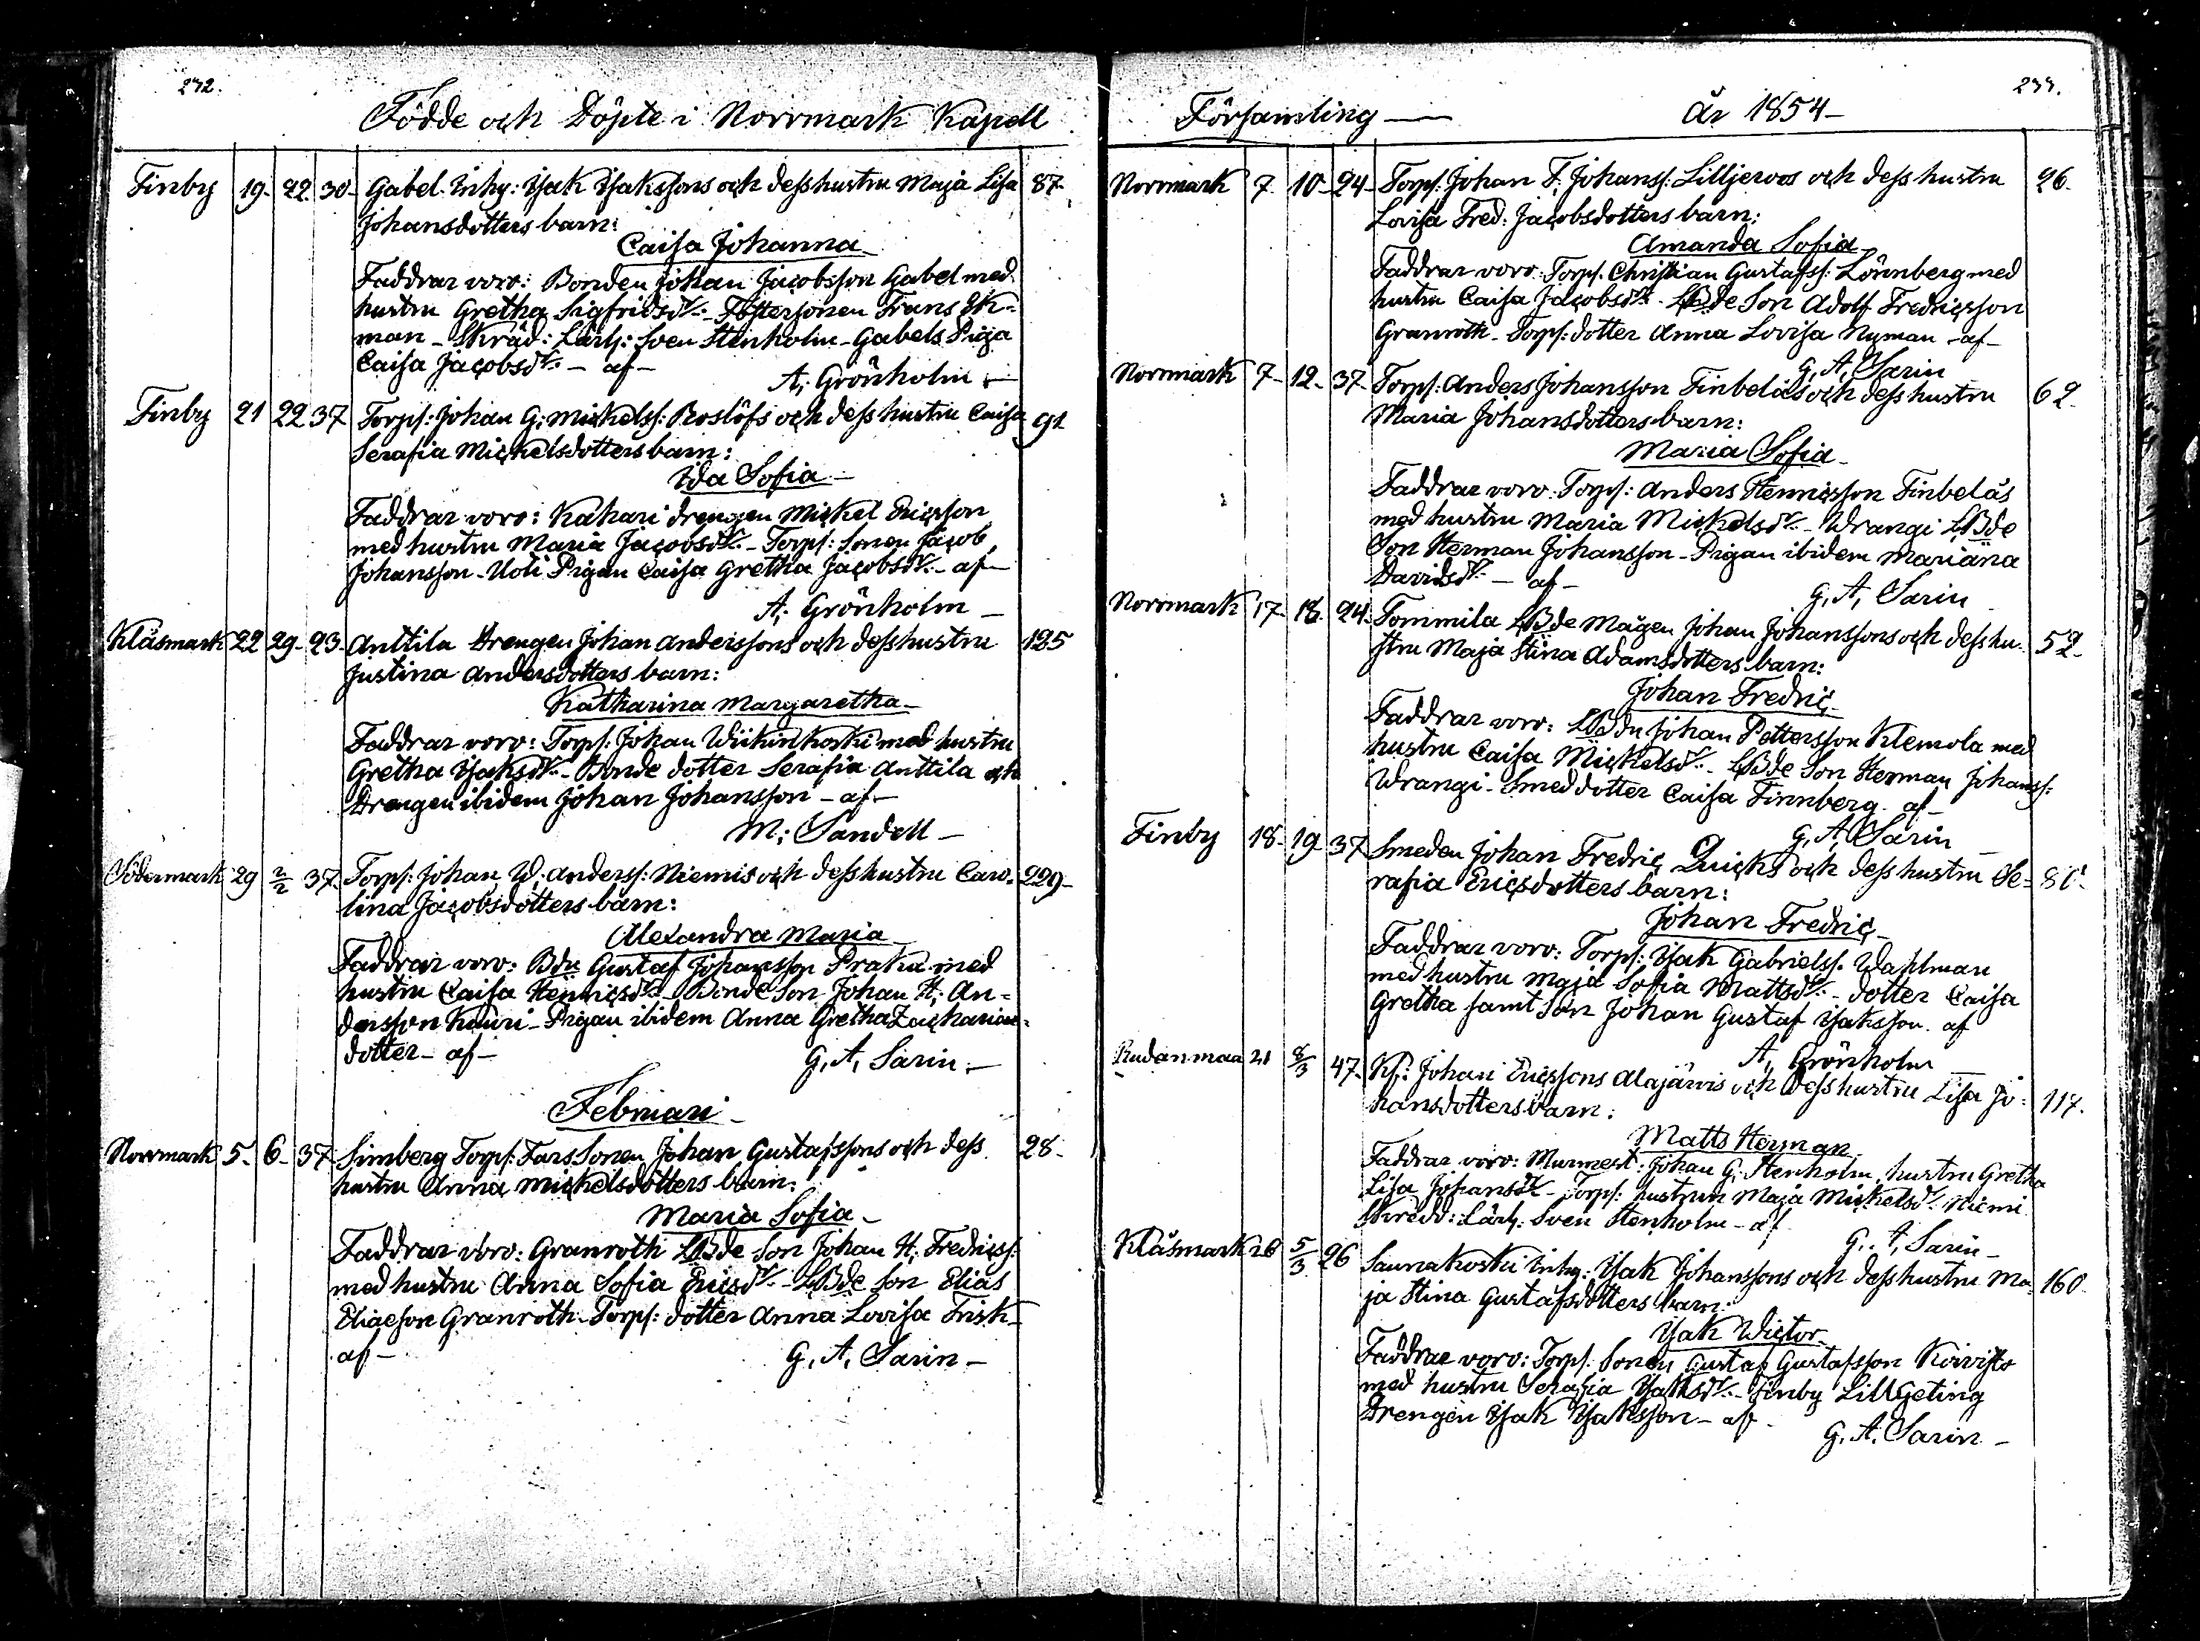 232.
Födde och Döpte i Norrmark Kapell
Finby 19. 22. 30. Gabel Inhy: Isak Isakssons och dess hustru Maja Lisa 87.
Johansdotters barn:
Caisa Johanna
Faddrar voro: Bonden Johan Jacobsson Gabel med
hustru Gretha Sigfridsdr. Fostersonen Frans Ek-
man - Skräd: Lärl: Sven Stenholm - Gabels Piga
Caisa Jacobsdr. - af -
A; Grönholm -
Finby 21 22 37 Torps: Johan G; Mickelss: Roslöfs och dess hustru Caisa 91
Serafia Mickelsdotters barn:
Ida Sofia -
Faddrar voro: Kahari drengen Mickel Ericsson
med hustru Maria Jacobsdr. - Torps: Sonen Jacob
Johansson - Uoti Pigan Caisa Gretha Jacobsdr. - af -
A; Grönholm -
Klåsmark 22 29. 23. Anttila Drengen Johan Anderssons och dess hustru 125
Justina Andersdotters barn:
Katharina Margaretha -
Faddrar voro: Torps: Johan Wiikinkoski med hustru
Gretha Isaksdr. - Bonde dotter Serafia Anttila och
Drengen ibidem Johan Johansson - af -
M; Sandell -
Södermark 29 2/2 37 Torps: Johan W. Anderss: Niemis och dess hustru Caro- 229.
lina Jacobsdotters barn:
Alexandra Maria
Faddrar voro: Bdn Gustaf Johansson Praku med
hustru Caisa Henricsdr. - Bonde Son Johan H; An-
dersson Kauri - Pigan ibidem Anna Gretha Zacharias-
dotter - af -
G. A. Sarin -
Februari -
Norrmark 5. 6. 37 Simberg Torps: Fars Sonen Johan Gustafssons och dess 28.
hustru Anna Mickelsdotters barn:
Maria Sofia -
Faddrar voro: Granroth LBde Son Johan H; Fredricss:
med hustru Anna Sofia Ericsdr. - LBde Son Elias
Eliaeson Granroth - Torps: dotter Anna Lovisa Frisk -
af -
G. A. Sarin -
233.
Församling - År 1854 -
Norrmark 7. 10. 24. Torps: Johan F. Johanss: Lilljeroos och dess hustru 26.
Lovisa Fred: Jacobsdotters barn:
Amanda Sofia -
Faddrar voro: Torps. Christian Gustafss: Lönnberg med
hustru Caisa Jacobsdr. - LBde Son Adolf Fredricsson
Granroth - Torps: dotter Anna Lovisa Nyman - af -
G, A, Sarin
Norrmark 7. 12. 37. Torps: Anders Johansson Finbeläs och dess hustru 62.
Maria Johansdotters barn:
Maria Sofia -
Faddrar voro: Torps: Anders Henricsson Finbeläs
med hustru Maria Mickelsdr. - Wrangi LBde
Son Herman Johansson - Pigan ibidem Mariäna
Davidsdr. - af -
G, A, Sarin
Norrmark 17. 18. 24. Tommila LBde Mågen Johan Johanssons och dess hu- 52.
stru Maja Stina Adamsdotters barn:
Johan Fredric
Faddrar voro: LBdn Johan Pettersson Klemola med
hustru Caisa Mickelsdr. - LBde Son Herman Johanss:
Wrangi - Smed dotter Caisa Finnberg - af -
G. A, Sarin -
Finby 18. 19. 37 Smeden Johan Fredric Quicks och dess hustru Se-
rafia Ericsdotters barn:
Johan Fredric -
Faddrar voro: Torps: Isak Gabrielss: Wahlman
med hustru Maja Sofia Mattsdr. - dotter Caisa
Gretha samt Son Johan Gustaf Isaksson. af
A, Grönholm -
Rudanmaa 21 8/3 47. Johan Ericssons Alajärvis och dess hustru Lisa Jo- 117.
hansdotters barn:
Matts Herman
Faddrar voro: Murmest: Johan G. Stenholm, hustru Gretha
Lisa Johansdr. - Torps: hustrun Maja Mickelsdr. Niemi
Skredd: Lärl: Sven Stenholm - af
G. A, Sarin -
Klåsmark 28 5/3 26 Saunakoski Inhy: Isak Johanssons och dess hustru Ma- 160.
ja Stina Gustafsdotters barn:
Isak Wictor -
Faddrar voro: Torps. Sonen Gustaf Gustafsson Koivisto
med hustru Serafia Isaksdr. - Finby Lill Geting
Drengen Isak Isaksson - af -
G. A. Sarin -